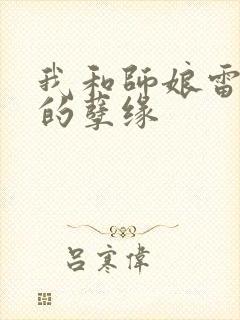 我和師娘雷
的孽缘
吕寒偉